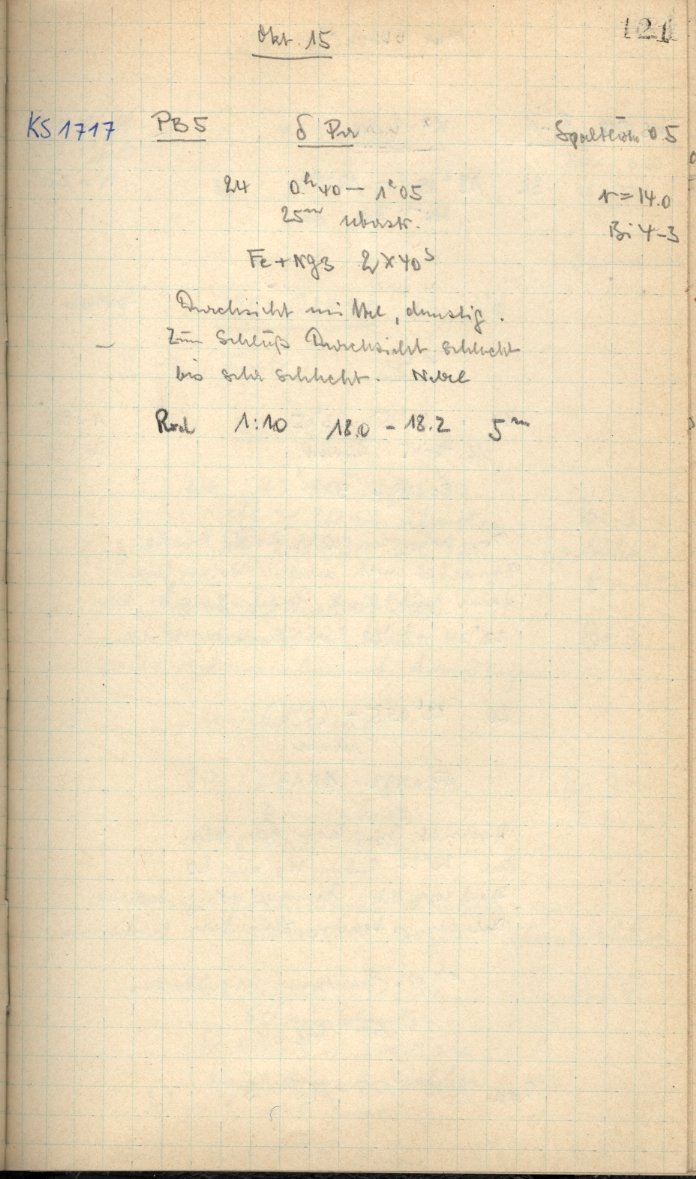 Okt. 15
121
KS 1717 PB5 δ Per Spalttün 0 5
24 0h 40 — 1h 05 r = 14.0
25m Bi 4-3
Fe + Ng3 2 x 40s
Durchsicht mittel, dunstig.
Zum Schluß Durchsicht schlecht
bis sehr schlecht. Nebel
Rod 1:10 18.0 - 18.2 5m